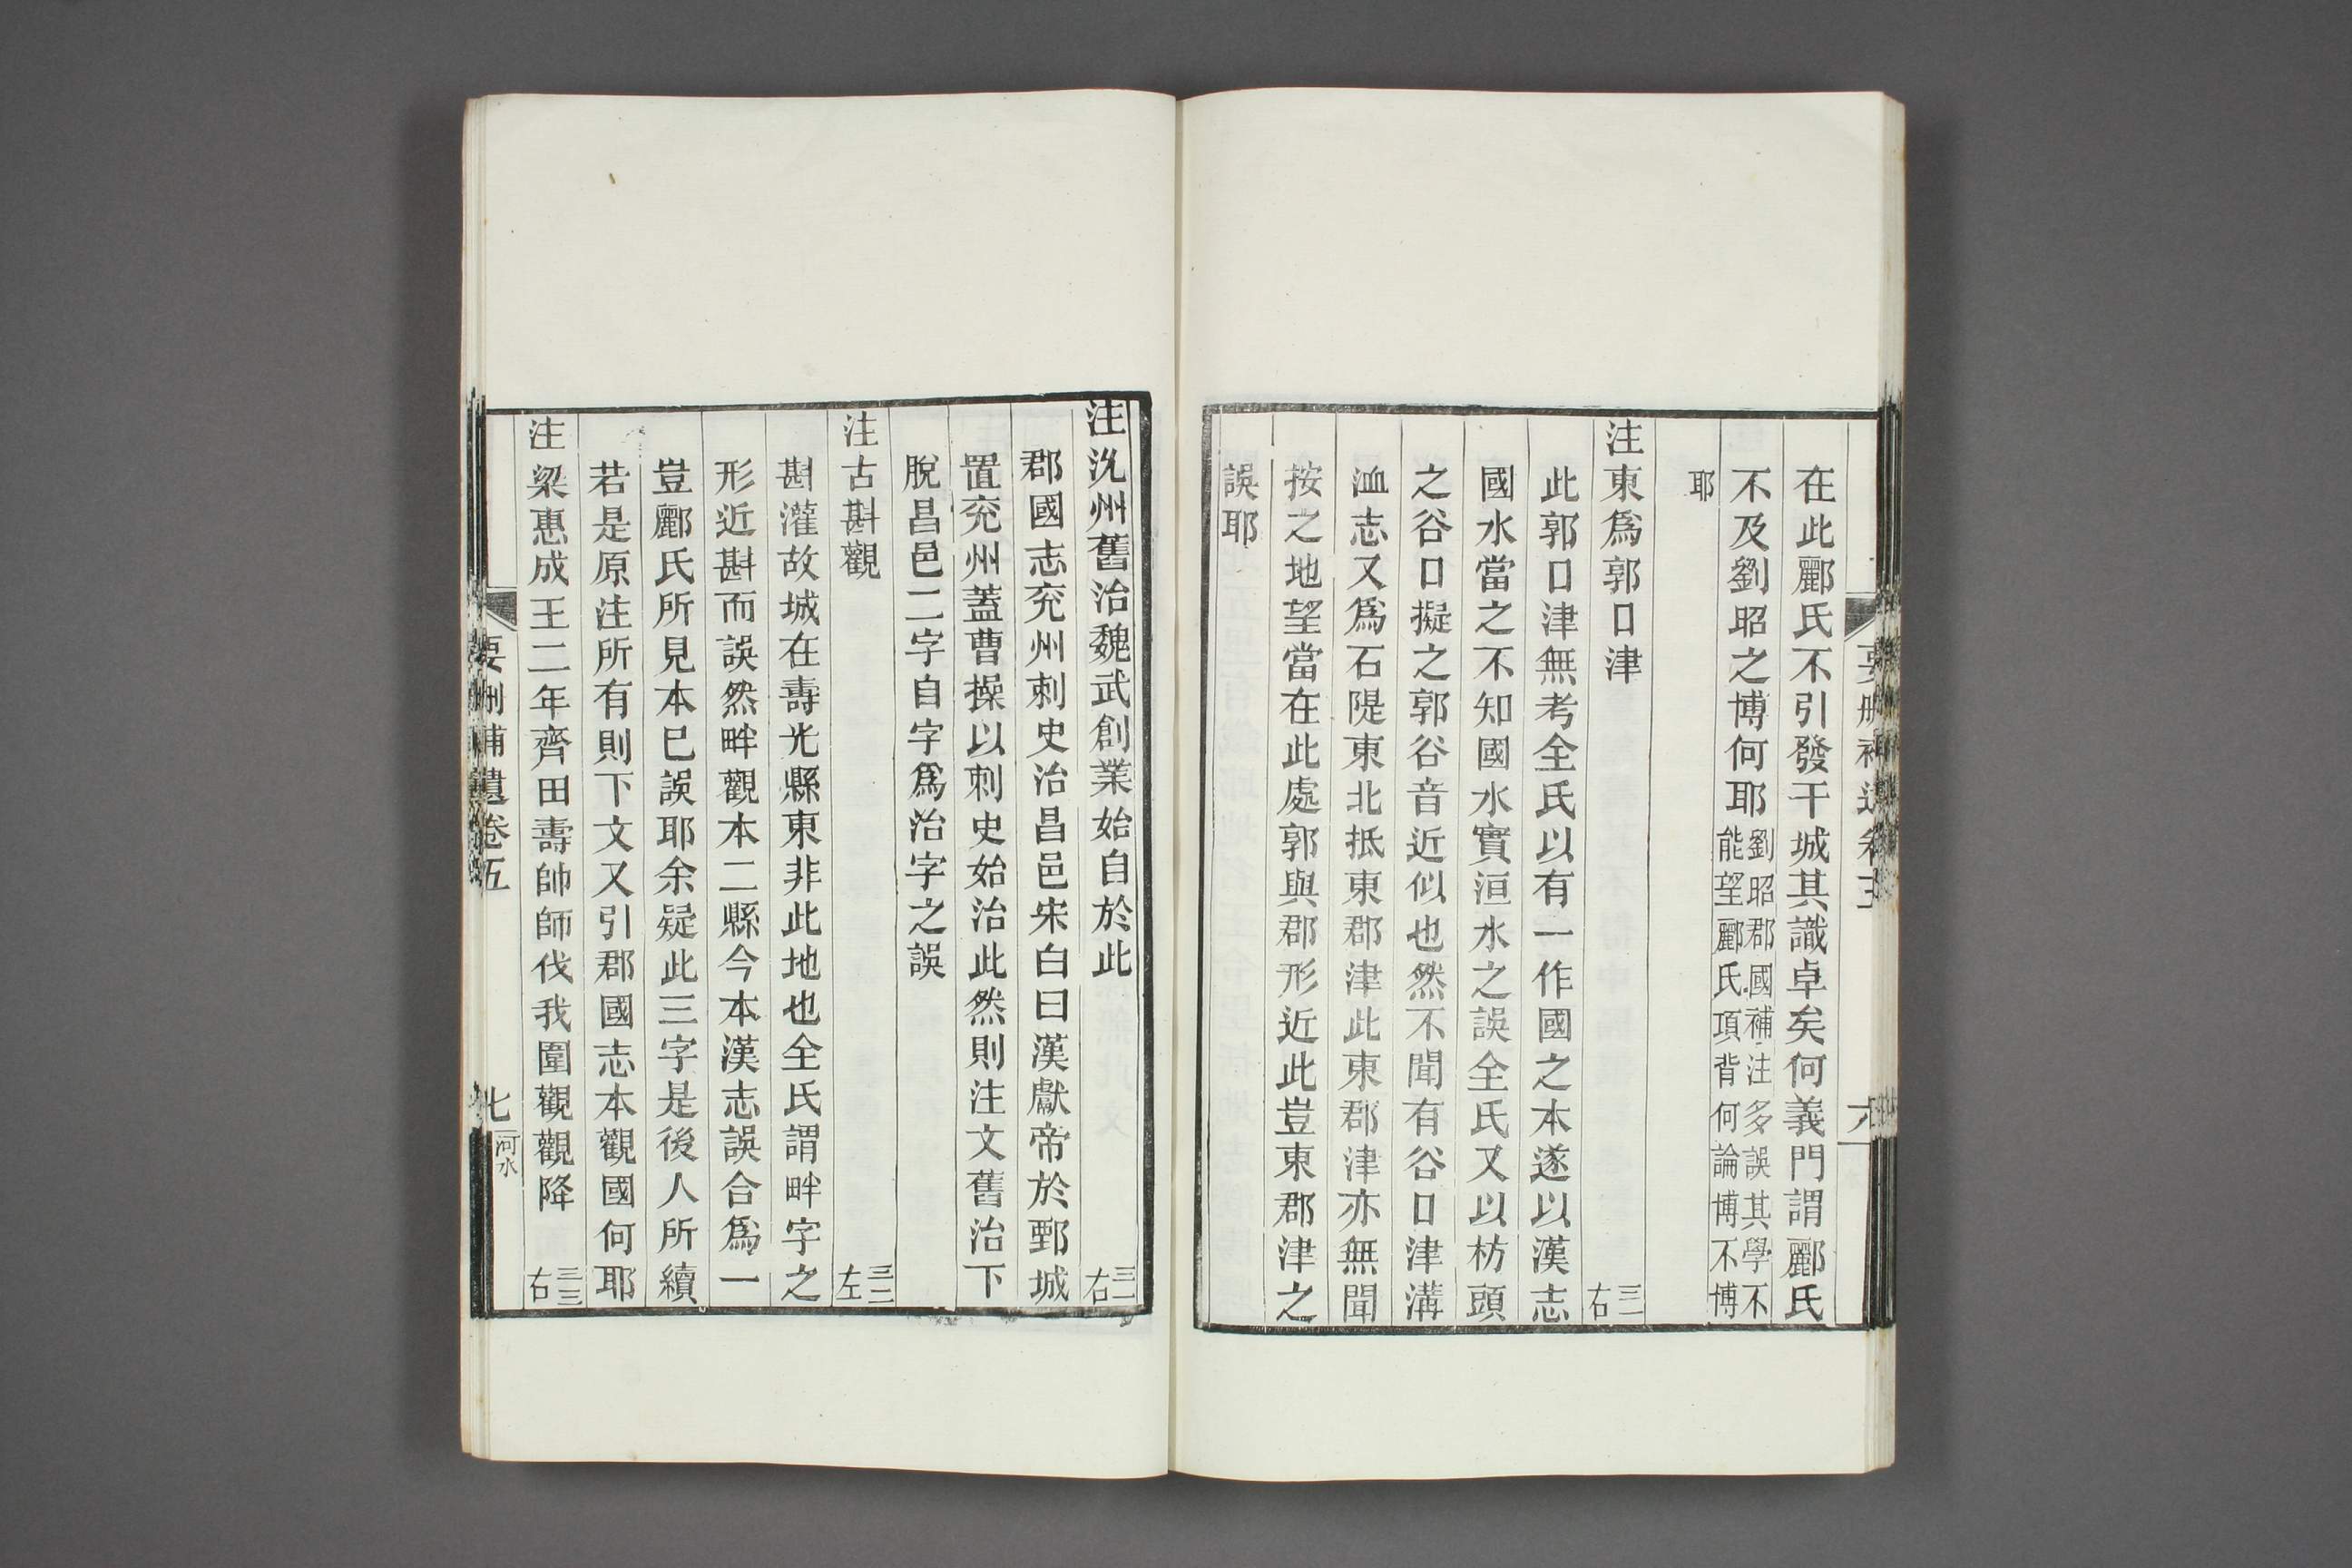 在此酈氏不引發干城其識卓矣何義門謂酈氏
不及劉昭之博何耶劉昭郡國補注多誤其學不
能望酈氏項背何論博不博
耶
注東爲郭口津三一右
此郭口津無考全氏以有一作國之本遂以漢志
國水當之不知國水實洹水之誤全氏又以枋頭
之谷口擬之郭谷音近似也然不聞有谷口津溝
洫志又爲石隄東北抵東郡津此東郡津亦無聞
按之地望當在此處郭與郡形近此豈東郡津之
誤耶
注沇州舊治魏武創業始自於此三一右
郡國志兖州刺史治昌邑宋白曰漢獻帝於鄄城
置兖州蓋曹操以刺史始治此然則注文舊治下
脫昌邑二字自字爲治字之誤
注古斟觀三二左
斟灌故城在壽光縣東非此地也全氏謂畔字之
形近斟而誤然畔觀本二縣今本漢志誤合爲一
豈酈氏所見本已誤耶余疑此三字是後人所續
若是原注所有則下文又引郡國志本觀國何耶
注梁惠成王二年齊田壽帥師伐我圍觀觀降三三右
要刪補遺卷五
七
河水